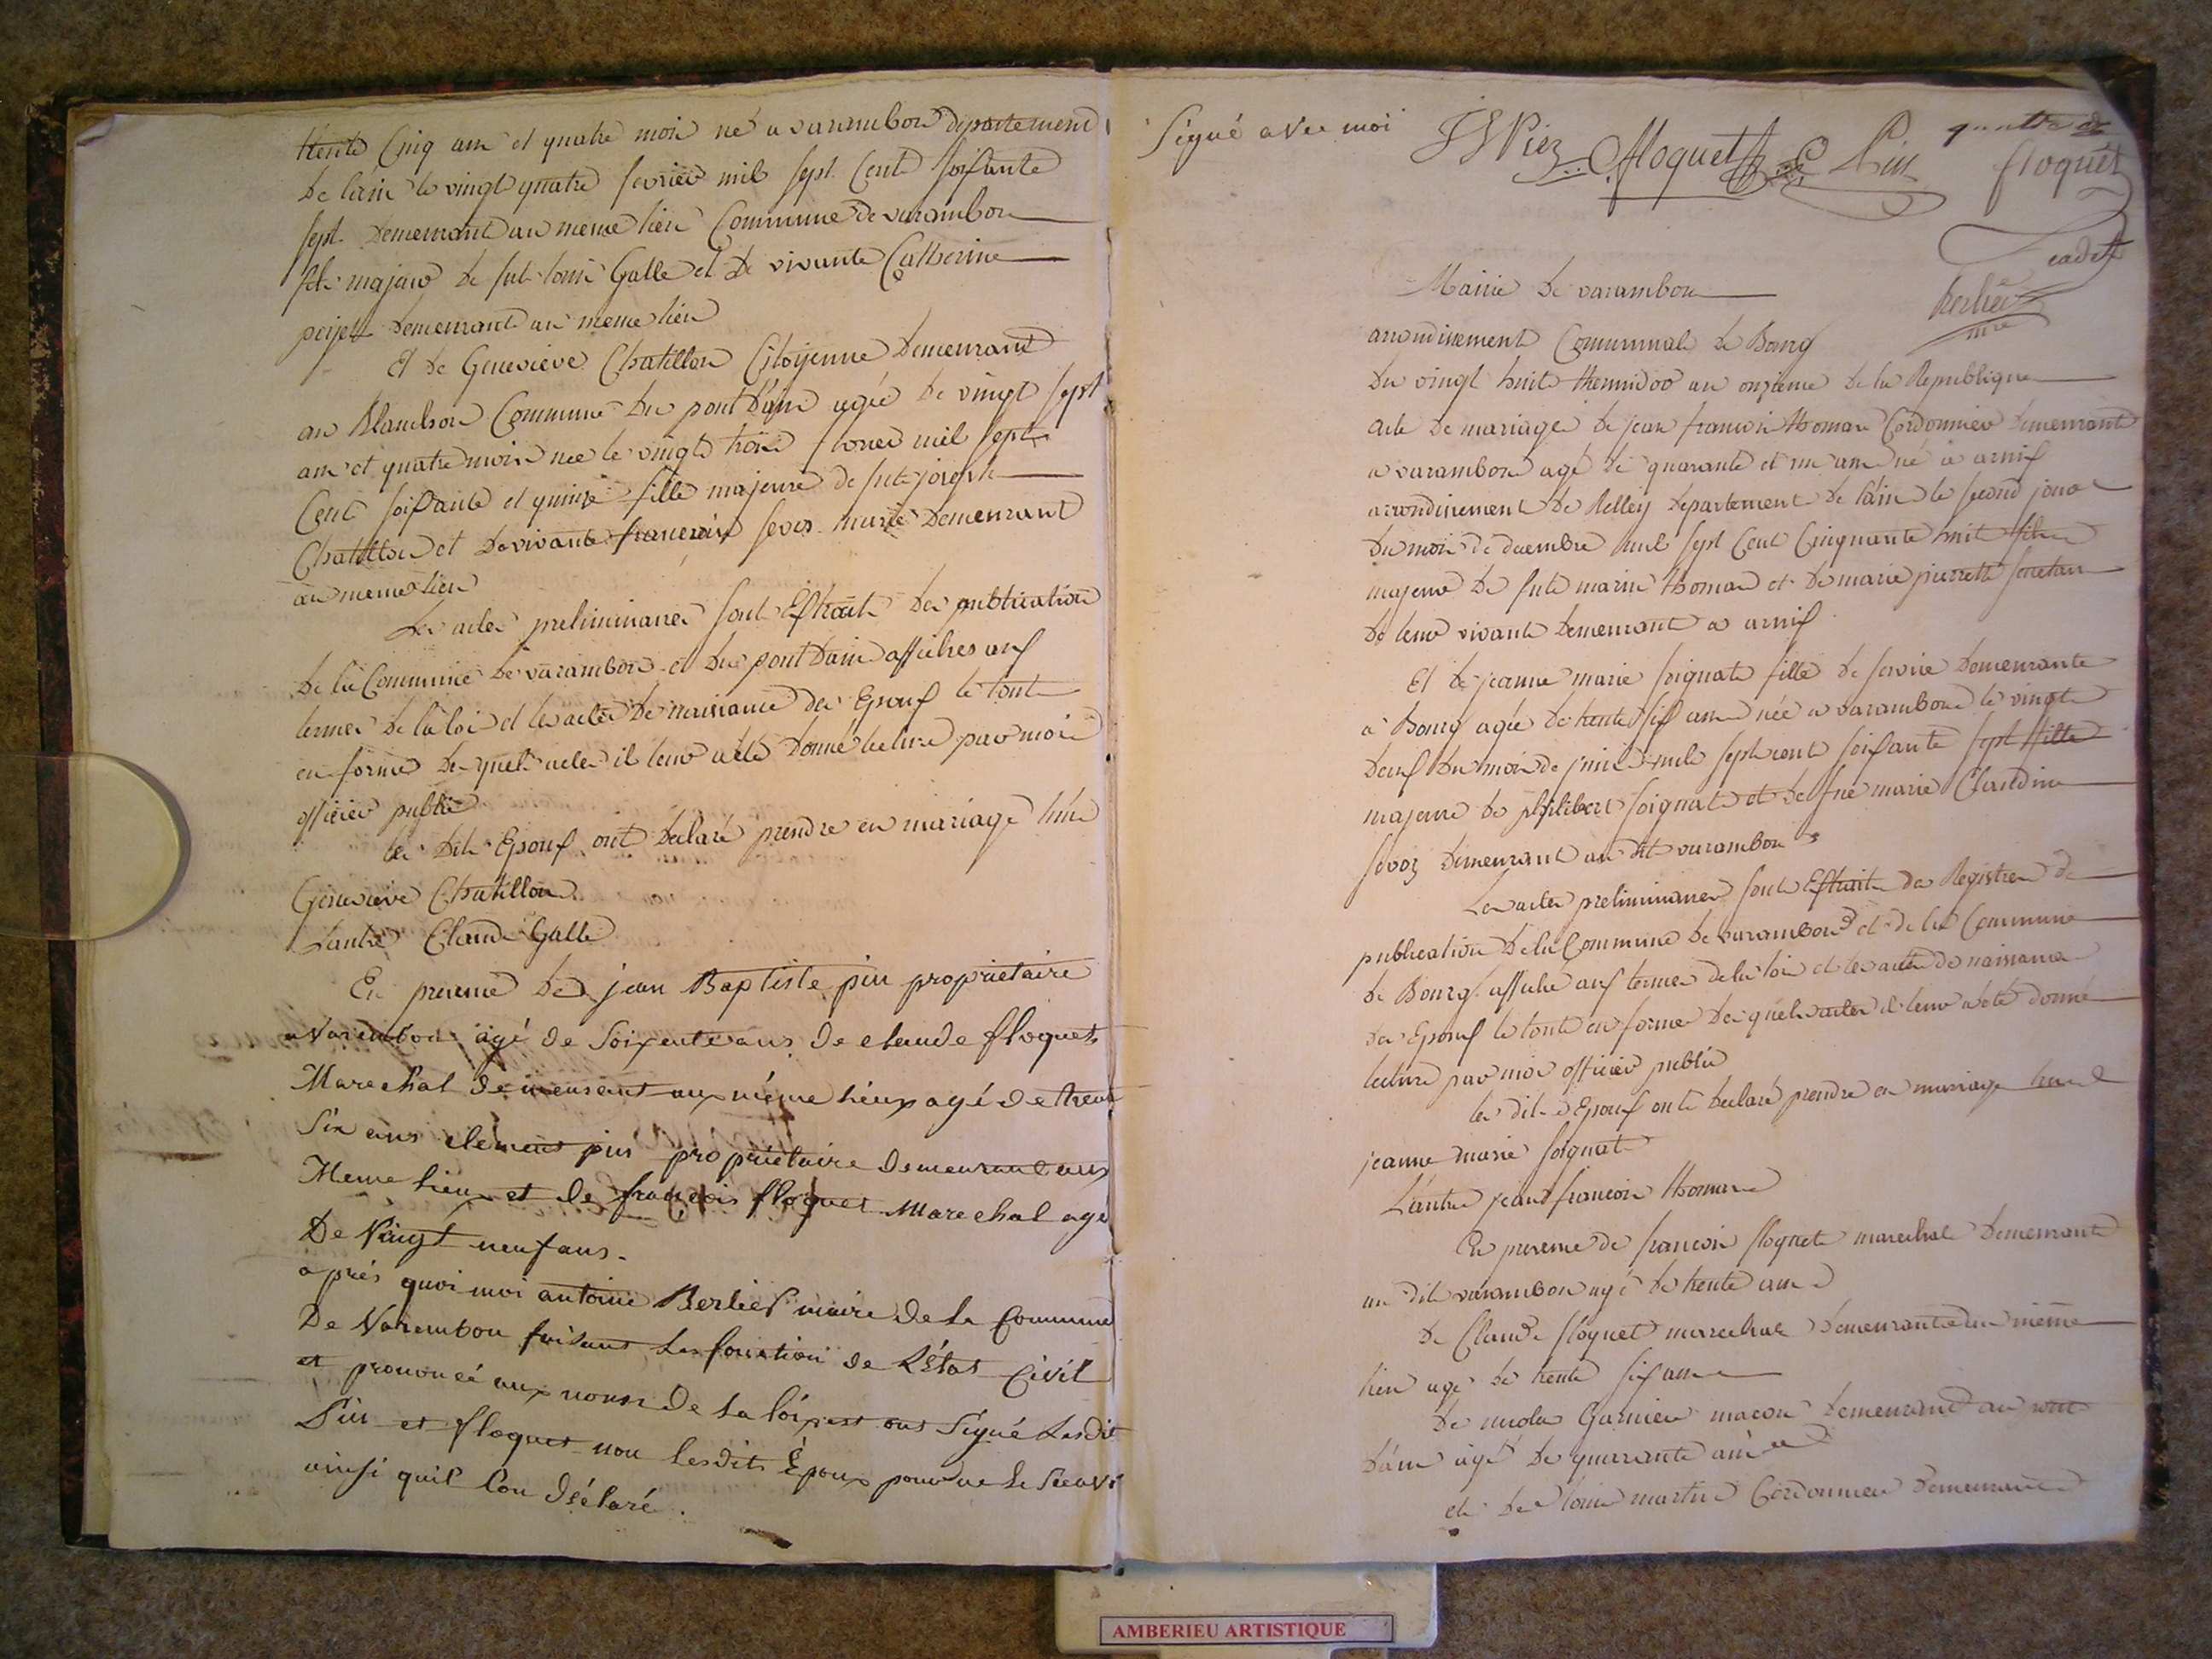 trente Cinq ans et quatre mois né a varambon département
De l'ain le vingt quatre fevrier mil sept Cent soisante
sept Demeurant au meme lieu Commune de varambon
fils majeur de fut louis Galle et de vivante Catherine
Demeurant au meme lieu
Et de Genevieve Chatillon Citoyenne Demeurant
au Blanchon Commune du pont D'ain agée de vingt sept
ans et quatre mois née le vingt trois mil sept
Cent soisante et quinze fille majeure de fut joseph
Chatillon et de vivante marie Demeurant
au meme lieu
Les actes preliminaires sont Estrait des publication
De la Commune de varambon et du pont Dain affiches aux
termes de la loi et les actes De naissance des Epoux le tout
en forme des quels actes il leur a été Donné lecture par moi
officier public
les Dits Epoux ont Declaré prendre en mariage l'une
Genevieve Chatillon
Lautre Claude Galle
En presence de jean Baptiste pin proprietaire
a Varembon agé de Soixente ans de claude floquet
Marechal demeurant aux méme lieux agé de trente
Six ans clément pin propriétaire demeurant aux
Meme lieux et de françois floquet Marechal agé
De Vingt neuf ans.
aprés quoi moi antoine Berlier maire de la Commune
De Varembon faisant les fonction de L'État Civil
et prononcé aux nomr de la loi et ont Signé Lesdit
Pin et floquet non lesdits Époux pour ne le
ainsi quil l'on déclaré.
Signé avec moi
floquet Pin
floquet
cadet
Berlier
mre
Mairie de varambon
arrondissement Communal de Bourg
Du vingt huit thermidor an onzieme de la Republique
acte de mariage de jean francois thomas Cordonnier demeurant
a varambon agé de quarante et un ans né a
arrondissement de Belley Departement de l'ain le second jour
Du mois de decembre mil sept Cent Cinquante huit fils
majeur de fut marin thomas et de marie pierrette
De leur vivant Demeurant a
Et de jeanne marie soignat fille de service Demeurante
a Bourg agée de trente six ans née a varambon le vingt
Deux Du mois de juin mil sept cent soisante sept fille
majeure de philibert soignat et de fue marie Claudine
Demeurant au dit varambon
Les actes preliminaires sont Estrait des Registres de
publication de la Commune de varambon et de la Commune
de Bourg affiché aux termes de la loi et les actes de naissance
des Epoux le tout en forme des quels actes il leur a été donné
lecture par moi officier public
les dits Epoux ont declaré prendre en mariage l'une
jeanne marie soignat
L'autre jean francois thomas
En presence de francois floquet marechal Demeurant
au dit varambon agé de trente ans
De Claude floquet marechal Demeurant au même
lieu agé de trente six ans
De nicolas Garnier macon Demeurant au pont
D'ain agé De quarante ans
et De louis martin Cordonnier Demeurant
AMBERIEU ARTISTIQUE